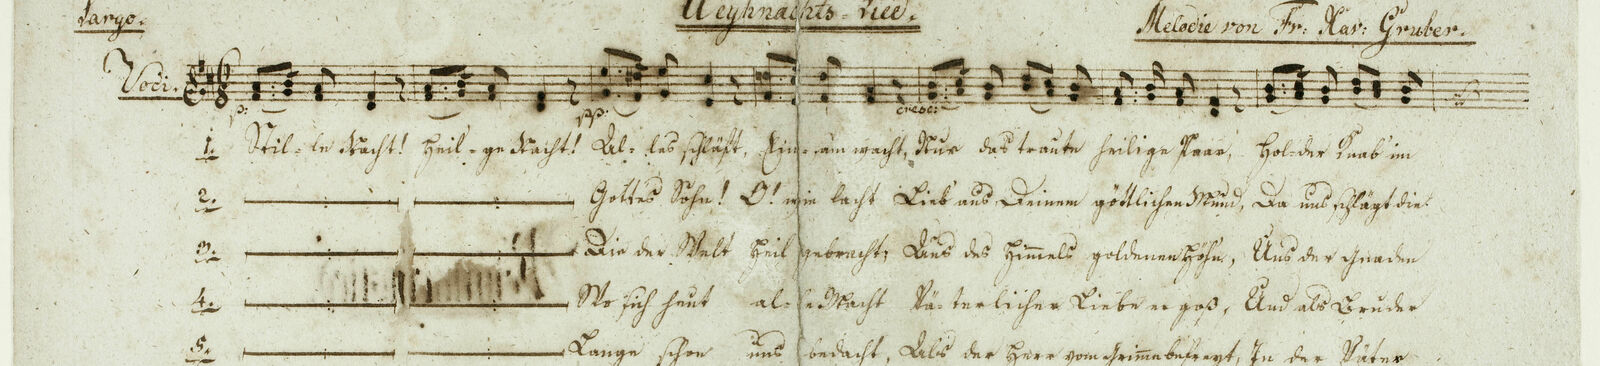 Largo.
Weyhnachts-Lied.
Melodie von Fr: Xav: Gruber.
Voci.
p: pp: cresc:
1. Stil-le Nacht! Heil-ge Nacht! Al-les schläft, Ein-sam wacht, Nur das traute heilige Paar, Hol-der Knab' im
2. Gottes Sohn! O! wie lacht Lieb aus Deinem göttlichen Mund, Da uns schlägt die
3. Die der Welt Heil gebracht; Aus des Himmels goldenen Höhn, Uns der Gnaden
4. Wo sich heut al-le Macht Vä-terlicher Liebe ergoß, Und als Bruder
5. Lange schon uns bedacht, Als der Herr vom Grimme befreyt, In der Väter